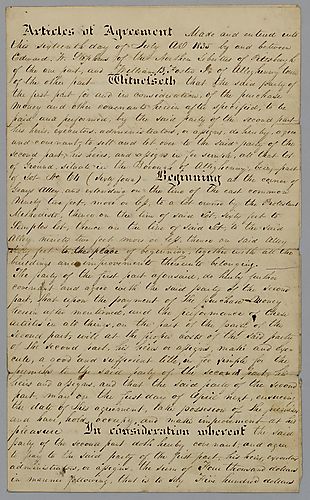 Articles of Agreement Made and entered into
this sixteenth day of July AD 1835 by and between
Edward W. Stephens of the Northern Liberties of Pittsburgh
of the one part, and William B. Foster Jr of Allegheny Town
of the other part Witnesseth That the said party of
the first part for and in consideration of the purchase
money and other covenants herein after specified, to be
paid and performed, by the said party of the second part
his heirs, executors, administrators, or assigns, do hereby, agree
and covenant, to sell and let over to the said party of the
second part, his heirs, and assigns in fee simple, all that lot
of Ground situate in the Borough of Allegheny being part
of Lot No 64 (Sixty four) Beginning at the corner of
Grays Alley and extending on the line of the east common
Ninety two feet, more or less, to a lot owned by the Protestant
Methodists, thence on the line of said Lot, Sixty feet to
Temples lot, thence on the line of said Lot, to the said
Alley Ninety two feet more or less, thence on said Alley
Sixty feet to the place of beginning, together with all the
buildings and improvements thereunto belonging.
The party of the first part aforesaid, do hereby further
covenant and agree with the said party of the second
part, that upon the payment of the purchase money
herein after mentioned, and the performance of these
articles in all things, on the part of the party of the second
part, will at the proper costs of the said party
of the second part, his heirs or assigns, make and exe-
cute, a good and sufficient title, in fee simple for the
premises to the said party of the second part, his
heirs and assigns, and that the said party of the second
part, may on the first day of April next ensuing
the date of this agreement, take possession of the premises
and have, hold, occupy, and make improvement at his
pleasure In consideration whereof the said
party of the second part doth hereby covenant, and agree
to pay to the said party of the first part, his heirs, executors
administrators, or assigns, the sum of Four thousand dollars
in manner following, that is to say Five hundred dollars